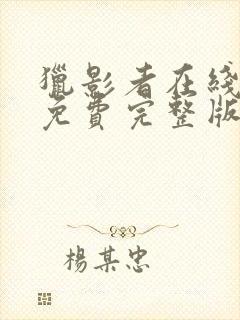 獵影者在綫
免費完整版
楊某忠